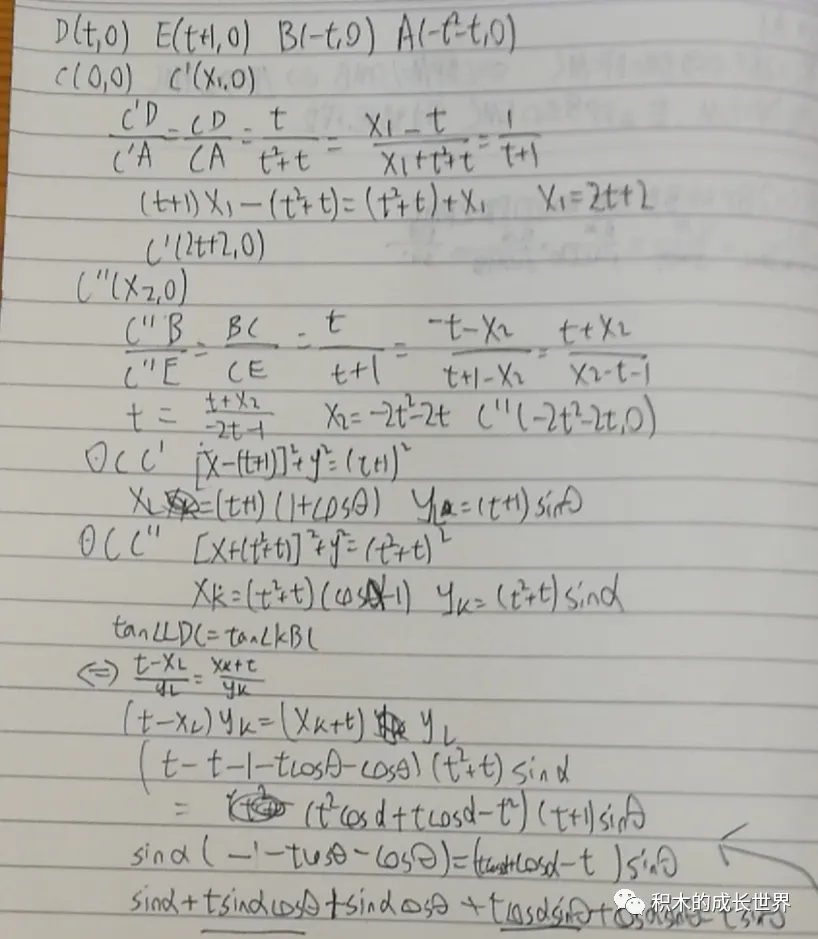 D(t,0) E(t+1,0) B(-t,0) A(-t²-t,0)
C(0,0) C'(X₁,0)
C'D/C'A = CD/CA = t/(t²+t) = (X₁-t)/(X₁+t²+t) = 1/(t+1)
(t+1)X₁-(t²+t)=(t²+t)+X₁ X₁=2t+2
C'(2t+2,0)
C''(X₂,0)
C''B/C''E = BC/CE = t/(t+1) = (-t-X₂)/(t+1-X₂) = (t+X₂)/(X₂-t-1)
t = (t+X₂)/(-2t-1) X₂=-2t²-2t C''(-2t²-2t,0)
⊙CC' [X-(t+1)]²+y²=(t+1)²
X_L=(t+1)(1+cosθ) y_L=(t+1)sinθ
⊙CC'' [X+(t²+t)]²+y²=(t²+t)²
X_K=(t²+t)(cosα-1) y_K=(t²+t)sinα
tan∠LDC=tan∠KBC
⇔ (t-X_L)/y_L = (X_K+t)/y_K
(t-X_L)y_K=(X_K+t) y_L
(t-t-1-tcosθ-cosθ)(t²+t)sinα
= (t²cosα+tcosα-t²)(t+1)sinθ
sinα(-1-tcosθ-cosθ)=( cosα-t )sinθ
sinα+tsinαcosθ+sinαcosθ+tcosαsinθ+cosαsinθ
积木的成长世界